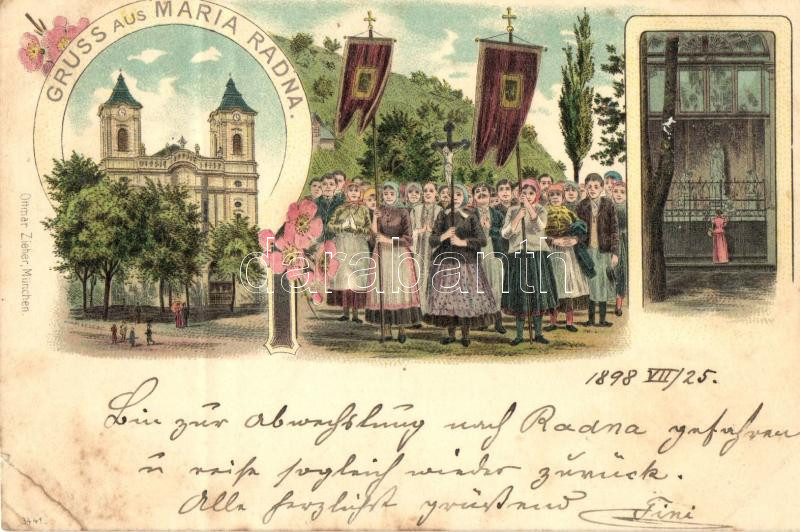 GRUSS AUS MARIA RADNA.
Ottmar Zieher, München.
darabanth
1898 VII/25.
Bin zur Abwechslung nach Radna gefahren
u reise sogleich wieder zurück.
Alle herzlichst grüßend Fini
3441